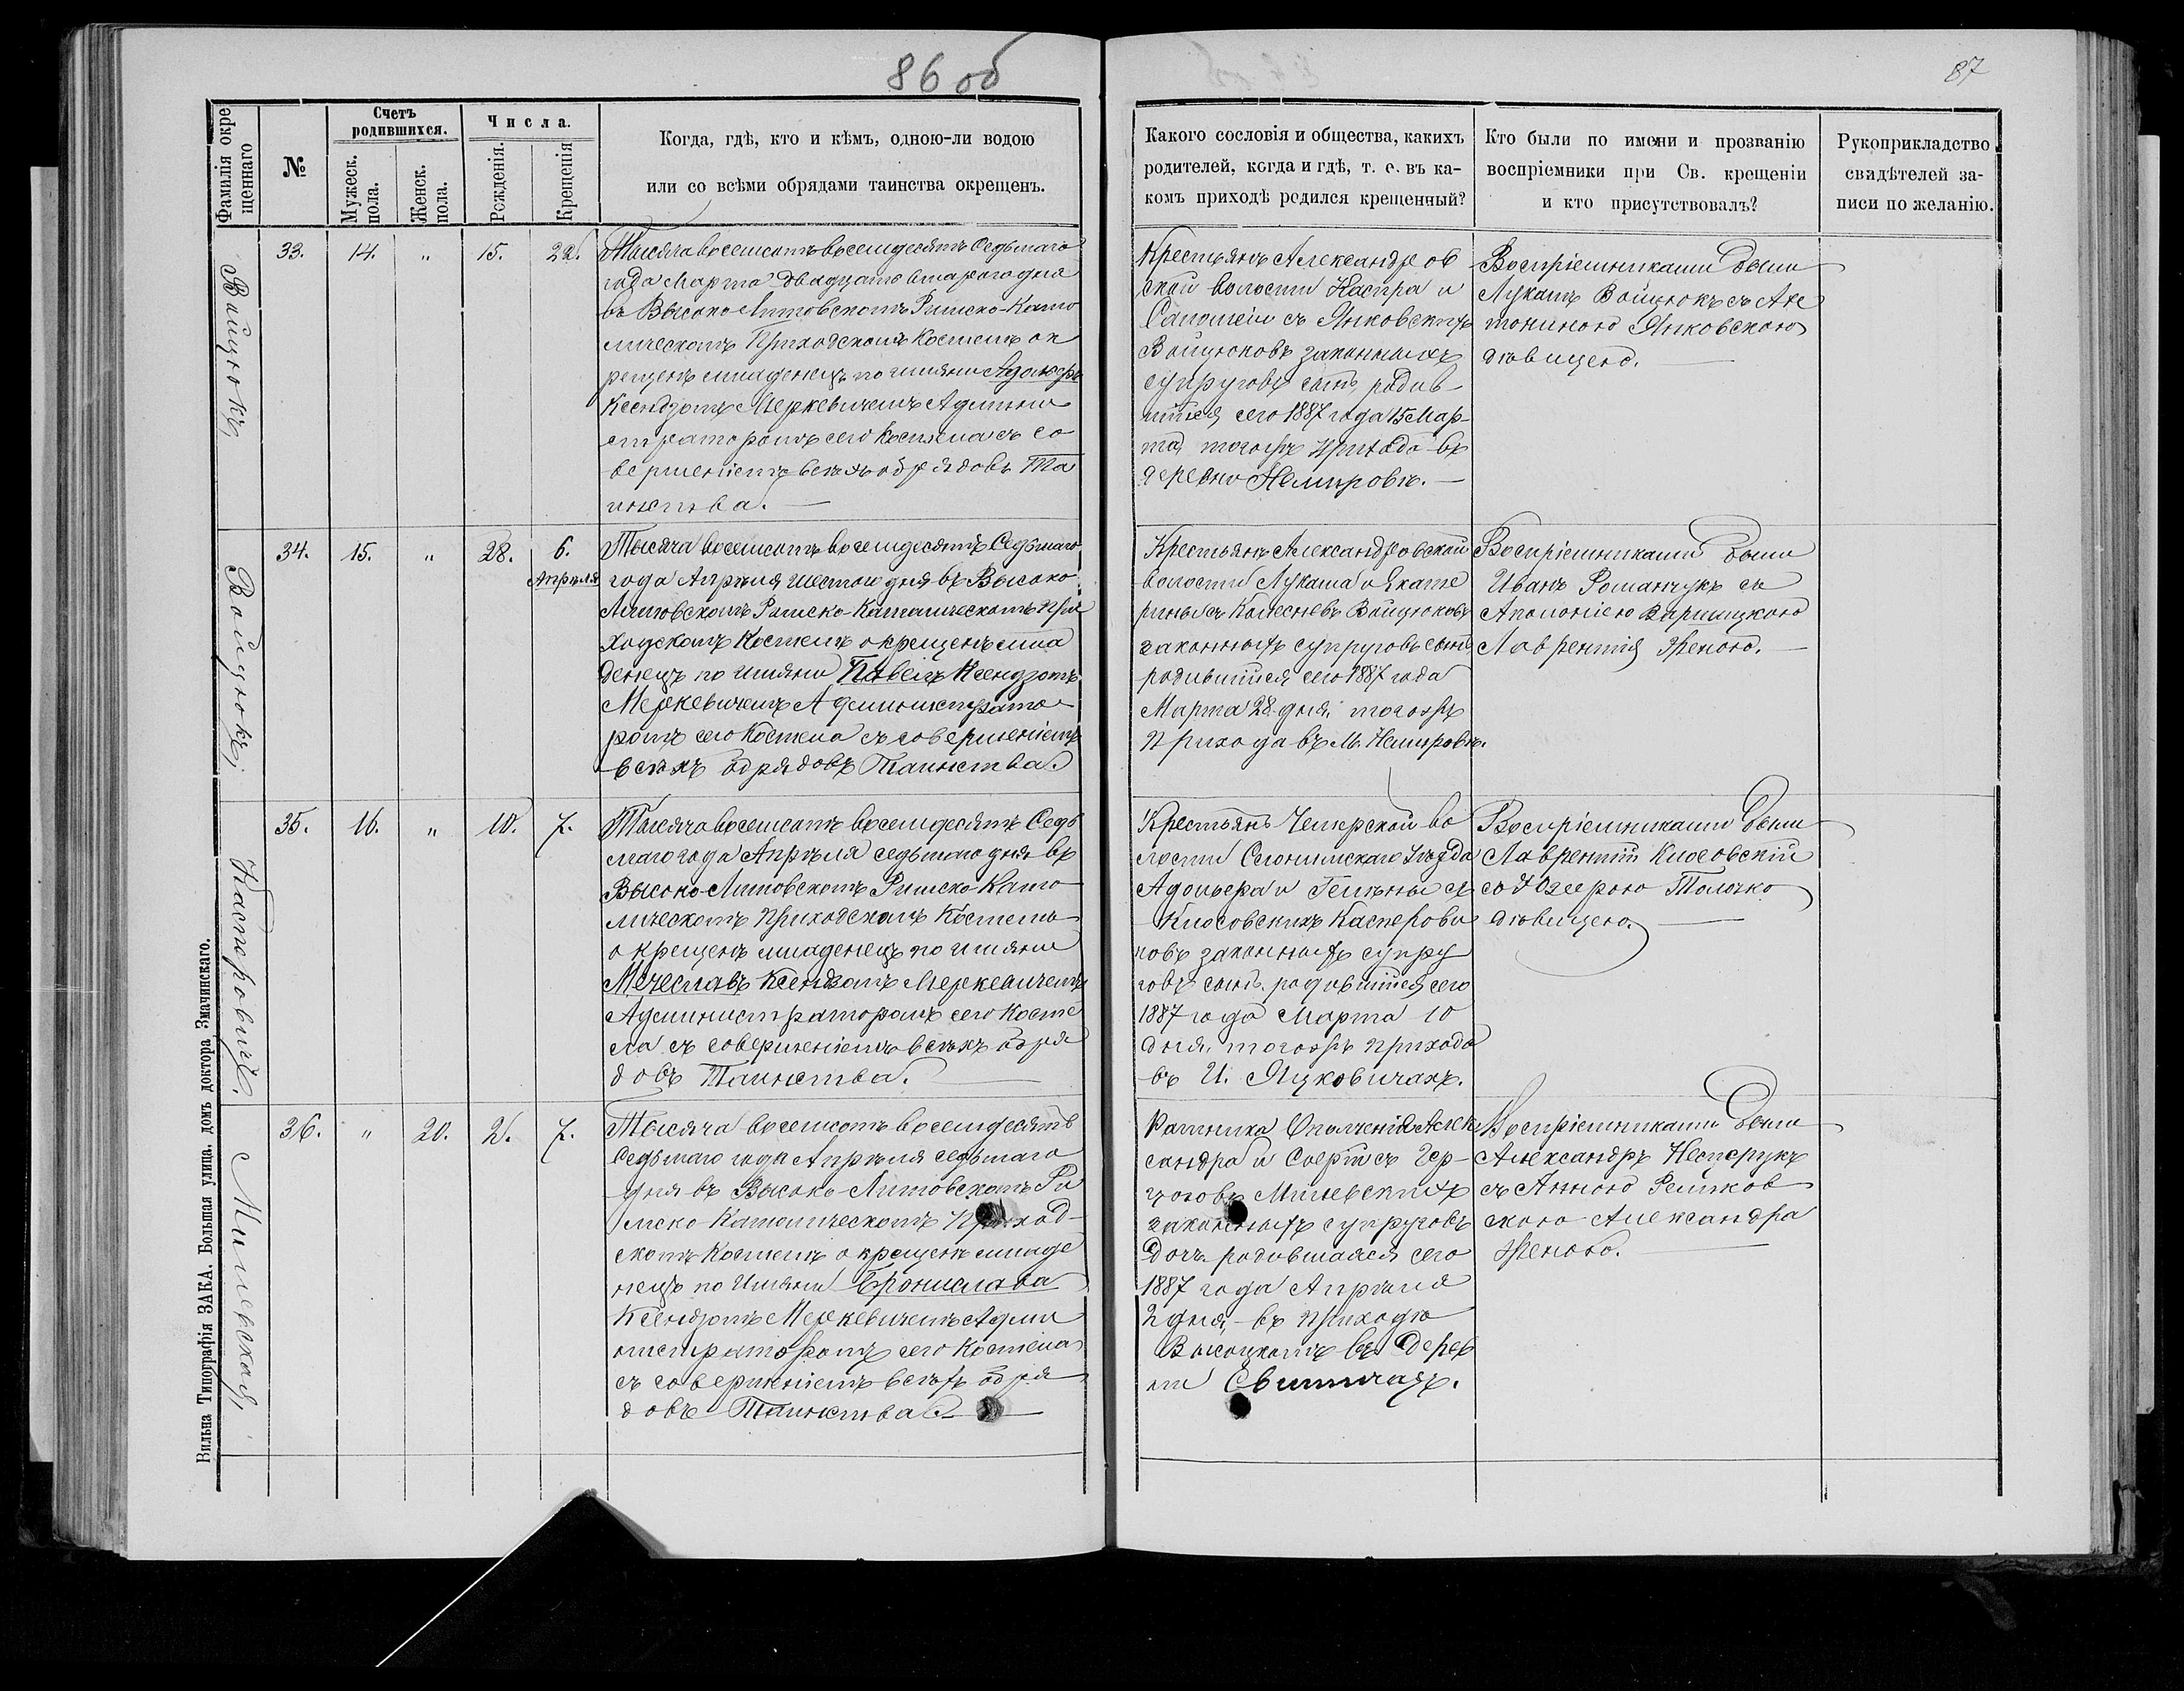 86 об
87
Фамилія окре
щеннаго
№
Счетъ
родившихся.
Мужеск.
пола.
Женск.
пола.
Числа.
Рожденія.
Крещенія
Когда, гдѣ, кто и кѣмъ, одною-ли водою
или со всѣми обрядами таинства окрещенъ.
Какого сословія и общества, какихъ
родителей, когда и гдѣ, т. е. въ ка-
комъ приходѣ родился крещенный?
Кто были по имени и прозванію
воспріемники при Св. крещеніи
и кто присутствовалъ?
Рукоприкладство
свидѣтелей за-
писи по желанію.
Войцюкъ,
33. 14. " 15. 22.
Тысяча восемсотъ восемдесятъ Седьмаго
года Марта двадцать втараго дня
въ Высоко Литовскомъ Римско-Като
лическомъ Приходскомъ Костелѣ ок
рещенъ младенецъ по имяни
Ксендзомъ Меркевичемъ Админи
страторомъ сего Костела съ со
вершеніемъ всѣхъ обрядовъ Та
инства.
Крестьянъ Александров
ской волости Каспра и
съ Янковскихъ
Войцюковъ законныхъ
супруговъ сынъ, родив
шійся сего 1887 года 15 Мар-
та, тогожъ прихода въ
деревни Немировѣ.
Воспріемниками были
Лукашъ Войцюкъ съ Ан
тониною Янковскою
дѣвицею.
Войцюкъ,
34. 15. " 28. 6.
Апрѣля
Тысяча восемсотъ восемдесятъ Седьмаго
года Апрѣля шестого дня въ Высоко
Литовскомъ Римско-Католическомъ При
ходскомъ Костелѣ окрещенъ мла
денецъ по имяни Павелъ Ксендзомъ
Меркевичемъ Администрато
ромъ сего Костела съ совершеніемъ
всѣхъ обрядовъ Таинства.
Крестьянъ Александровской
волости Лукаша и Екате
рины съ Войцюковъ
законныхъ супруговъ сынъ,
родившійся сего 1887 года
Марта 28 дня, тогожъ
прихода въ М. Немировѣ.
Воспріемниками были
Иванъ Романчукъ съ
Аполоніею Варшицкою
Лаврентія Женою.
Касперовичъ.
35. 16. " 10. 7.
Тысяча восемсотъ восемдесятъ Седь
маго года Апрѣля седьмаго дня въ
Высоко-Литовскомъ Римско-Като
лическомъ Приходскомъ Костелѣ
окрещенъ младенецъ по имяни
Мечеславъ Ксендзомъ Меркевичемъ
Администраторомъ сего Косте
ла съ совершеніемъ всѣхъ обря
довъ Таинства.
Крестьянъ Чемерской во
лости Слонимскаго Уѣзда
и Гелѣны съ
Касперови
човъ законныхъ супру
говъ сынъ, родившійся сего
1887 года Марта 10
дня, тогожъ прихода
въ И. Яцковичахъ.
Воспріемниками были
Лаврентій
съ Юзефою Толочко
дѣвицею.
Милевская,
36. " 20. 2. 7.
Тысяча восемсотъ восемдесятъ
Седьмаго года Апрѣля седьмаго
дня въ Высоко-Литовскомъ Ри
мско Католическомъ Приход-
скомъ Костелѣ окрещенъ младе
нецъ по Имяни Бронислава
Ксендзомъ Меркевичемъ Адми
нистраторомъ сего Костела
съ совершеніемъ всѣхъ обря
довъ Таинства.
Ратника Ополченія Алек
сандра и Софіи съ Гер-
цоговъ Милевскихъ
законныхъ супруговъ
дочь родившаяся сего
1887 года Апрѣля
2 дня, въ приходѣ
Высоцкомъ въ дерев
ни
Воспріемниками были
Александръ Нестерукъ
съ Анною
скою Александра
Женою.
Вильна Типографія ЗАКА, Большая улица, домъ доктора Змачинскаго.